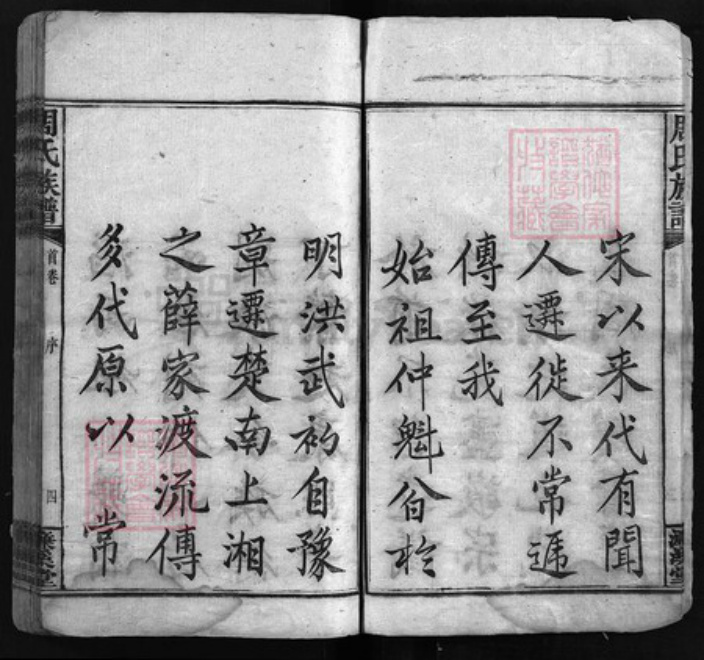 宋以来代有聞
人遷徙不常遞
傳至我
始祖仲魁翁於
明洪武初自豫
章遷楚南上湘
之薛家渡流傳
多代原以常
周氏族譜
首卷
序
四
周氏族譜